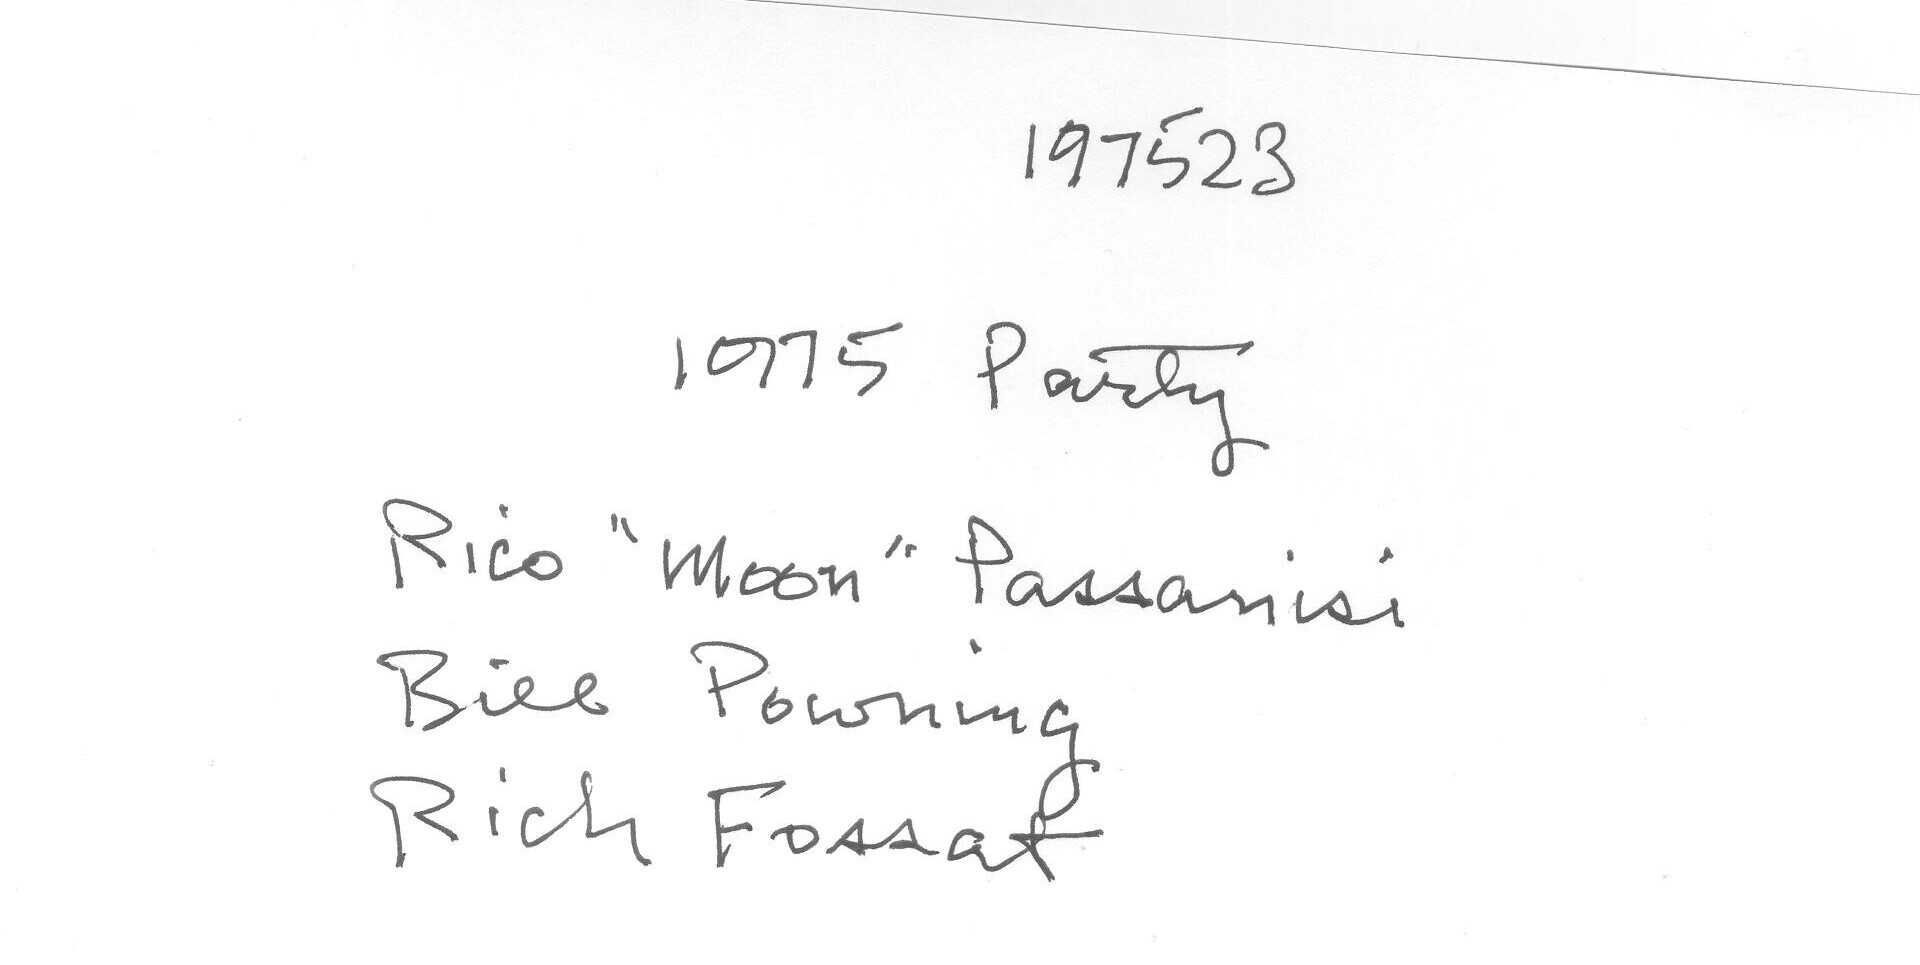 197523
1975 Party
Rico "Moon" Passanisi
Bill Powning
Rich Fossat